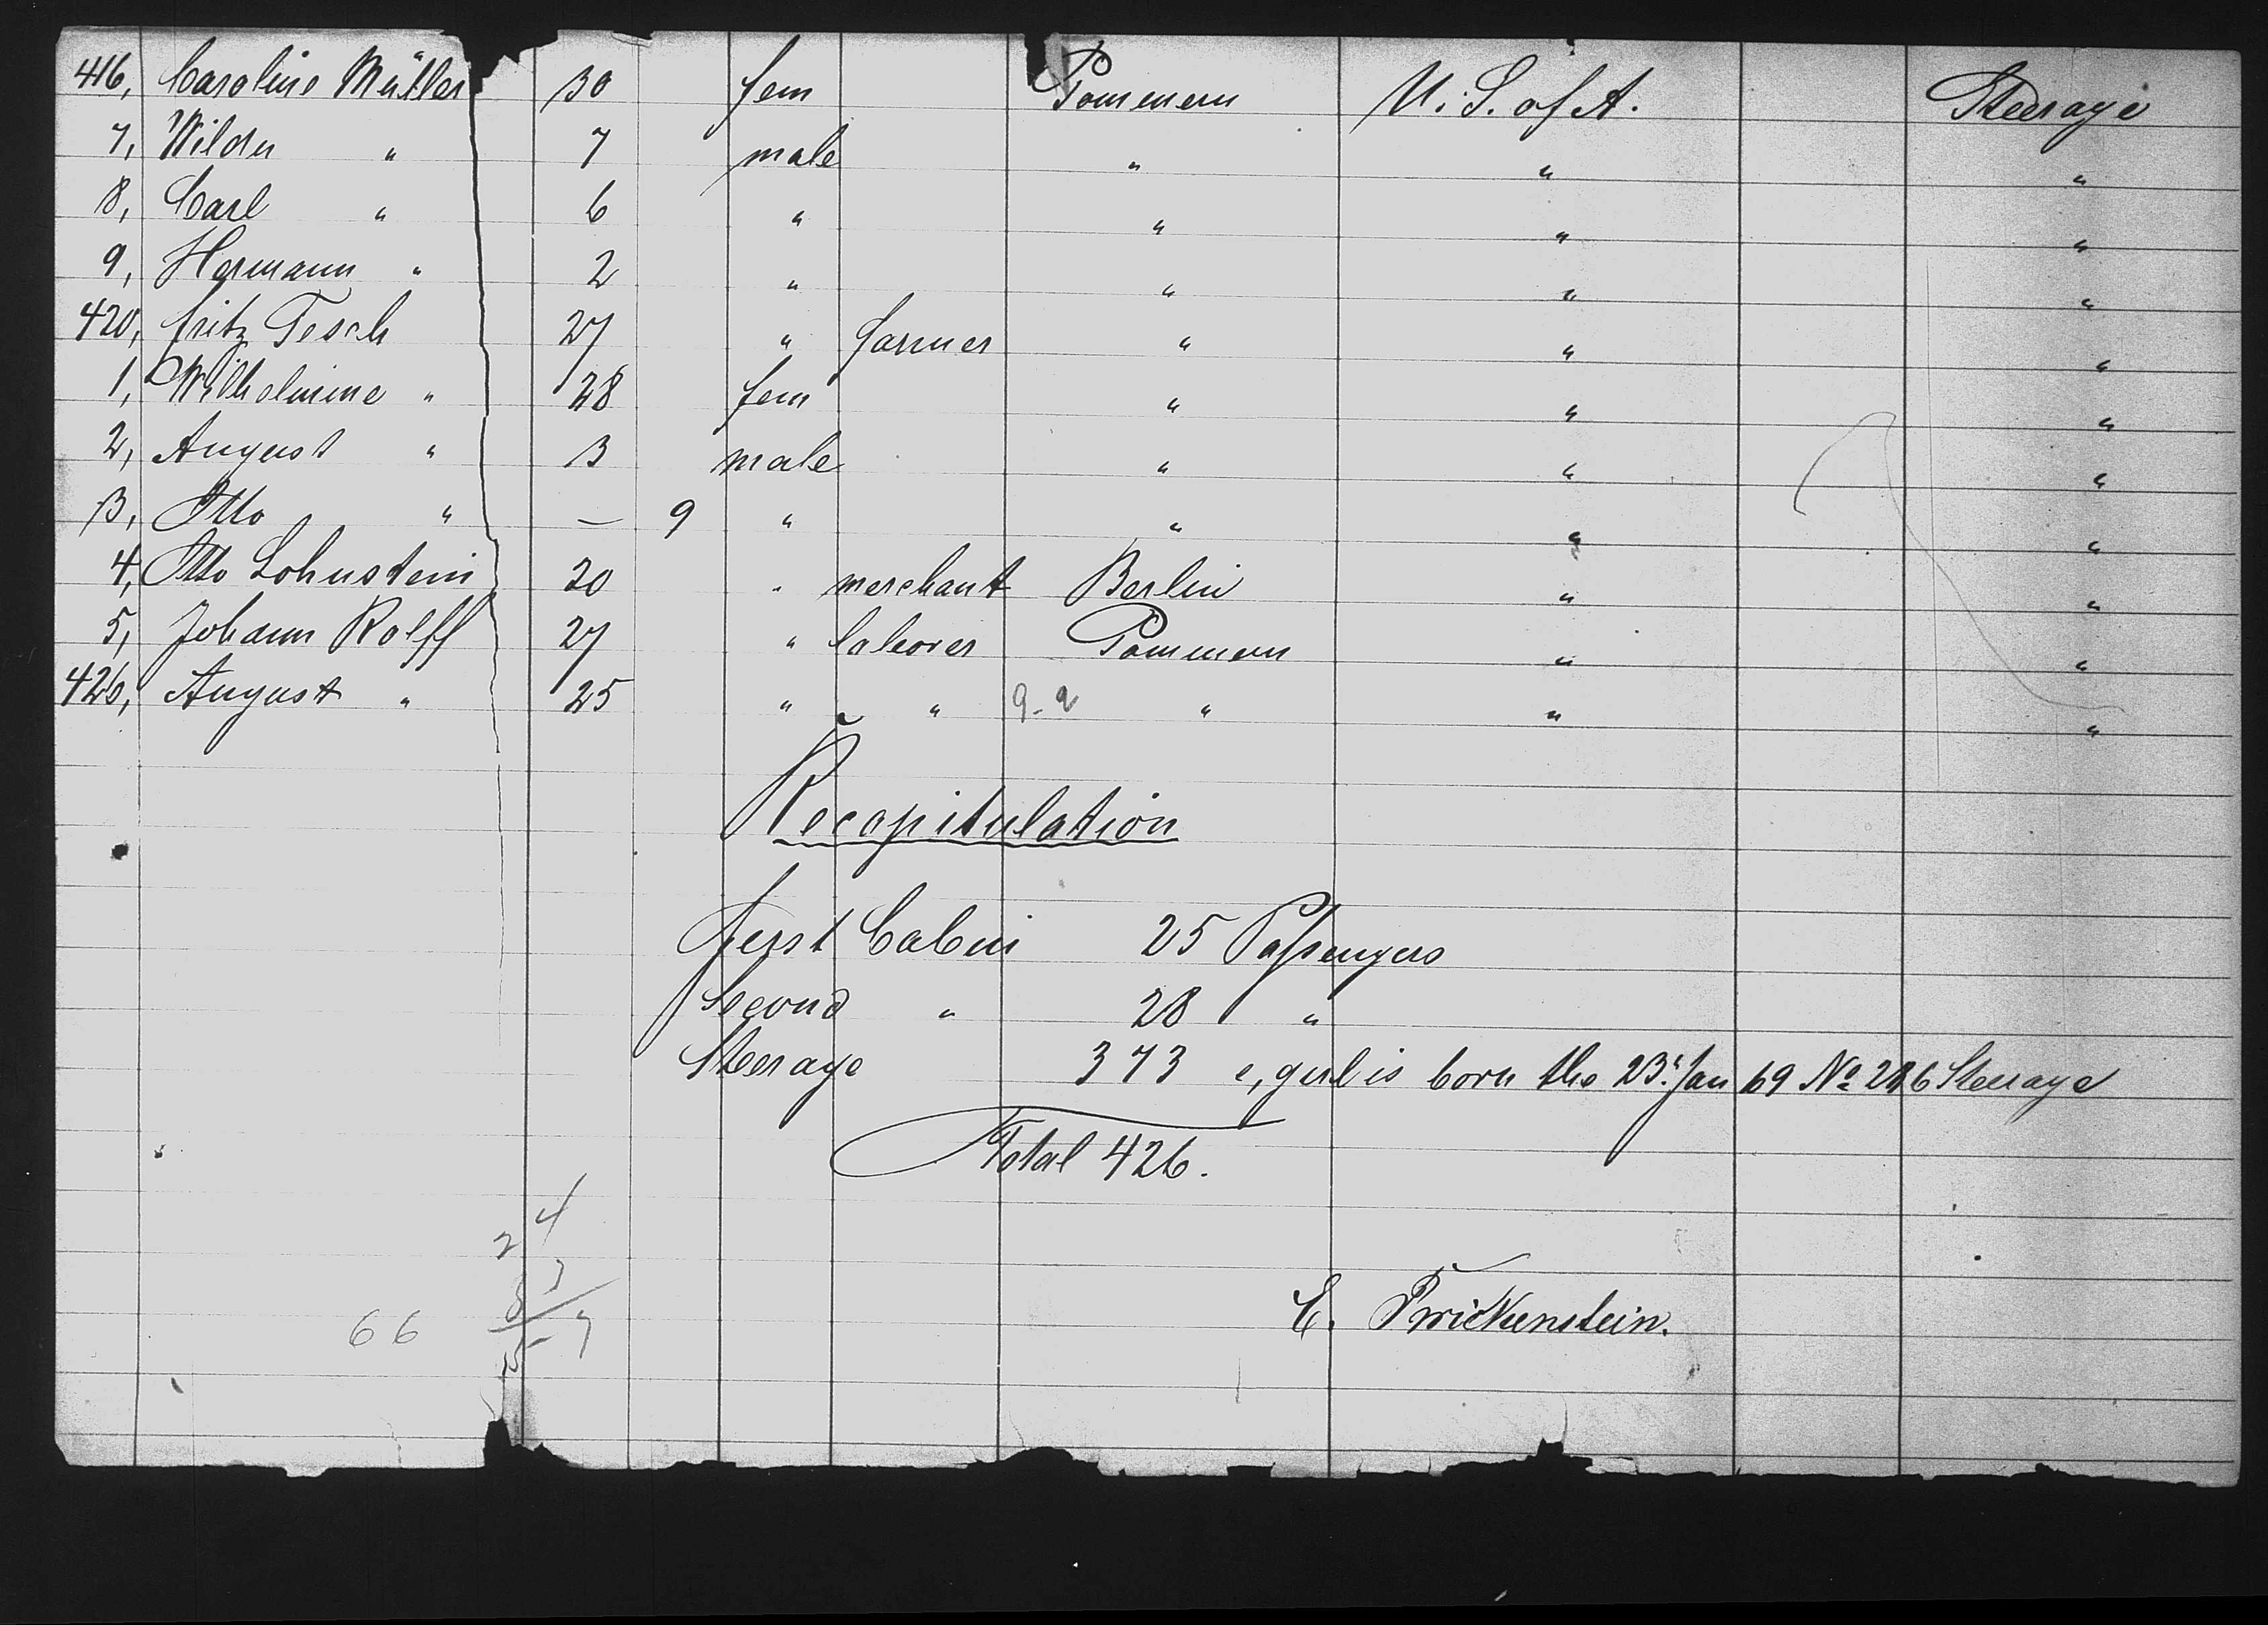 416, Caroline Müller 30 fem Pommern U. S. of A. Steerage
7, " 7 male " " "
8, Carl " 6 " " " "
9, Hermann " 2 " " " "
420, Fritz Tesch 27 " farmer " " "
1, Wilhelmine " 28 fem " " "
2, August " 3 male " " "
3, Otto " — 9 " " " "
4, Otto Lohnstein 20 " merchant Berlin " "
5, Johann Rolff 27 " laborer Pommern " "
426, August " 25 " " 9-2 " " "
Recapitulation
First Cabin 25 Passengers
Second " 28 "
Steerage 373 girl is born the 23. Jan 69 No Steerage
Total 426.
4
2
66
E.